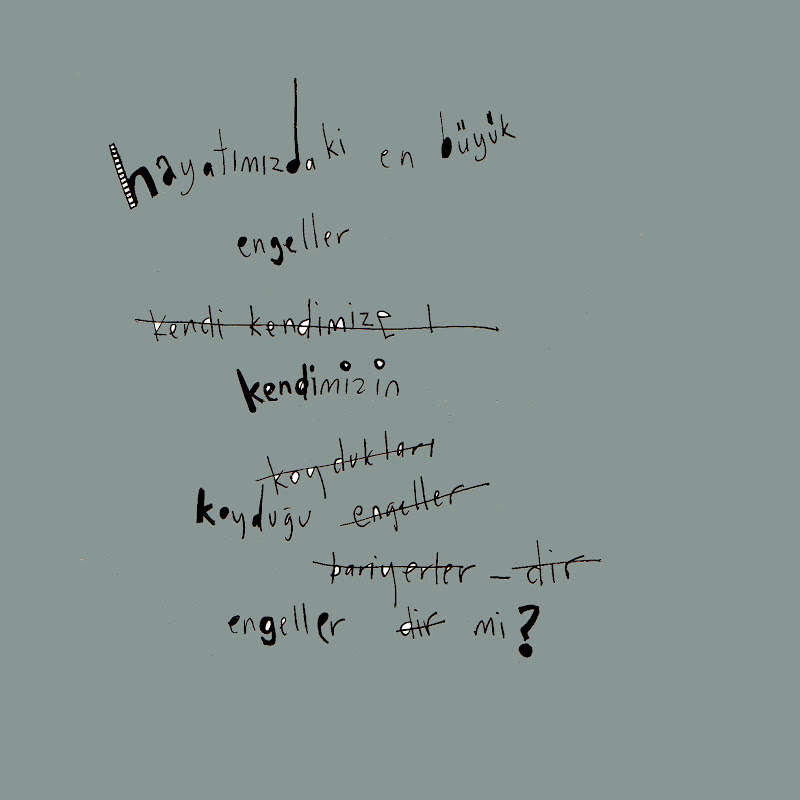 hayatımızdaki en büyük
engeller
kendi kendimize
kendimizin
koydukları
koyduğu engeller
bariyerler - dir
engeller dir mi?